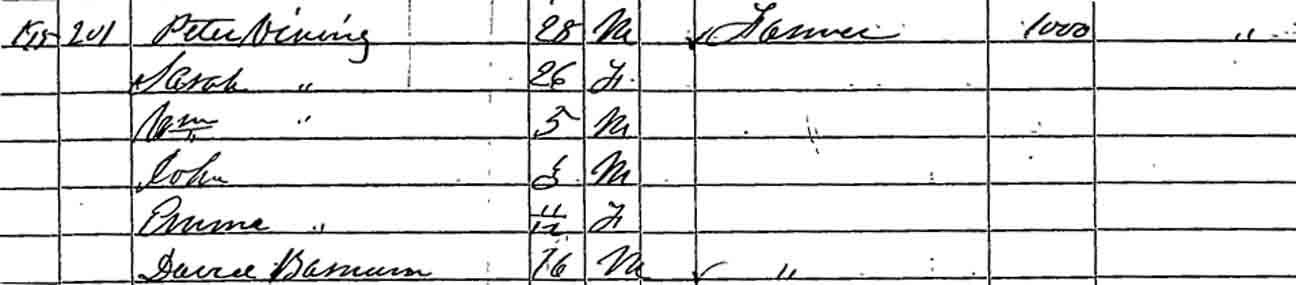 201 Peter Vining 28 M Farmer 1000 "
Sarah " 26 F
Wm " 5 M
John 3 M
Emma " 11/12 F
David Barnum 16 M "